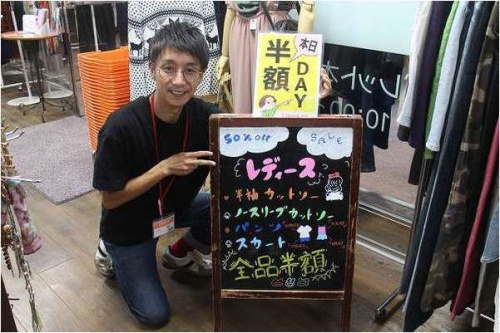 本日
半額
DAY
レット
10:00
50%off
SALE
レディース
半袖カットソー
ノースリーブカットソー
パンツ
スカート
全品半額